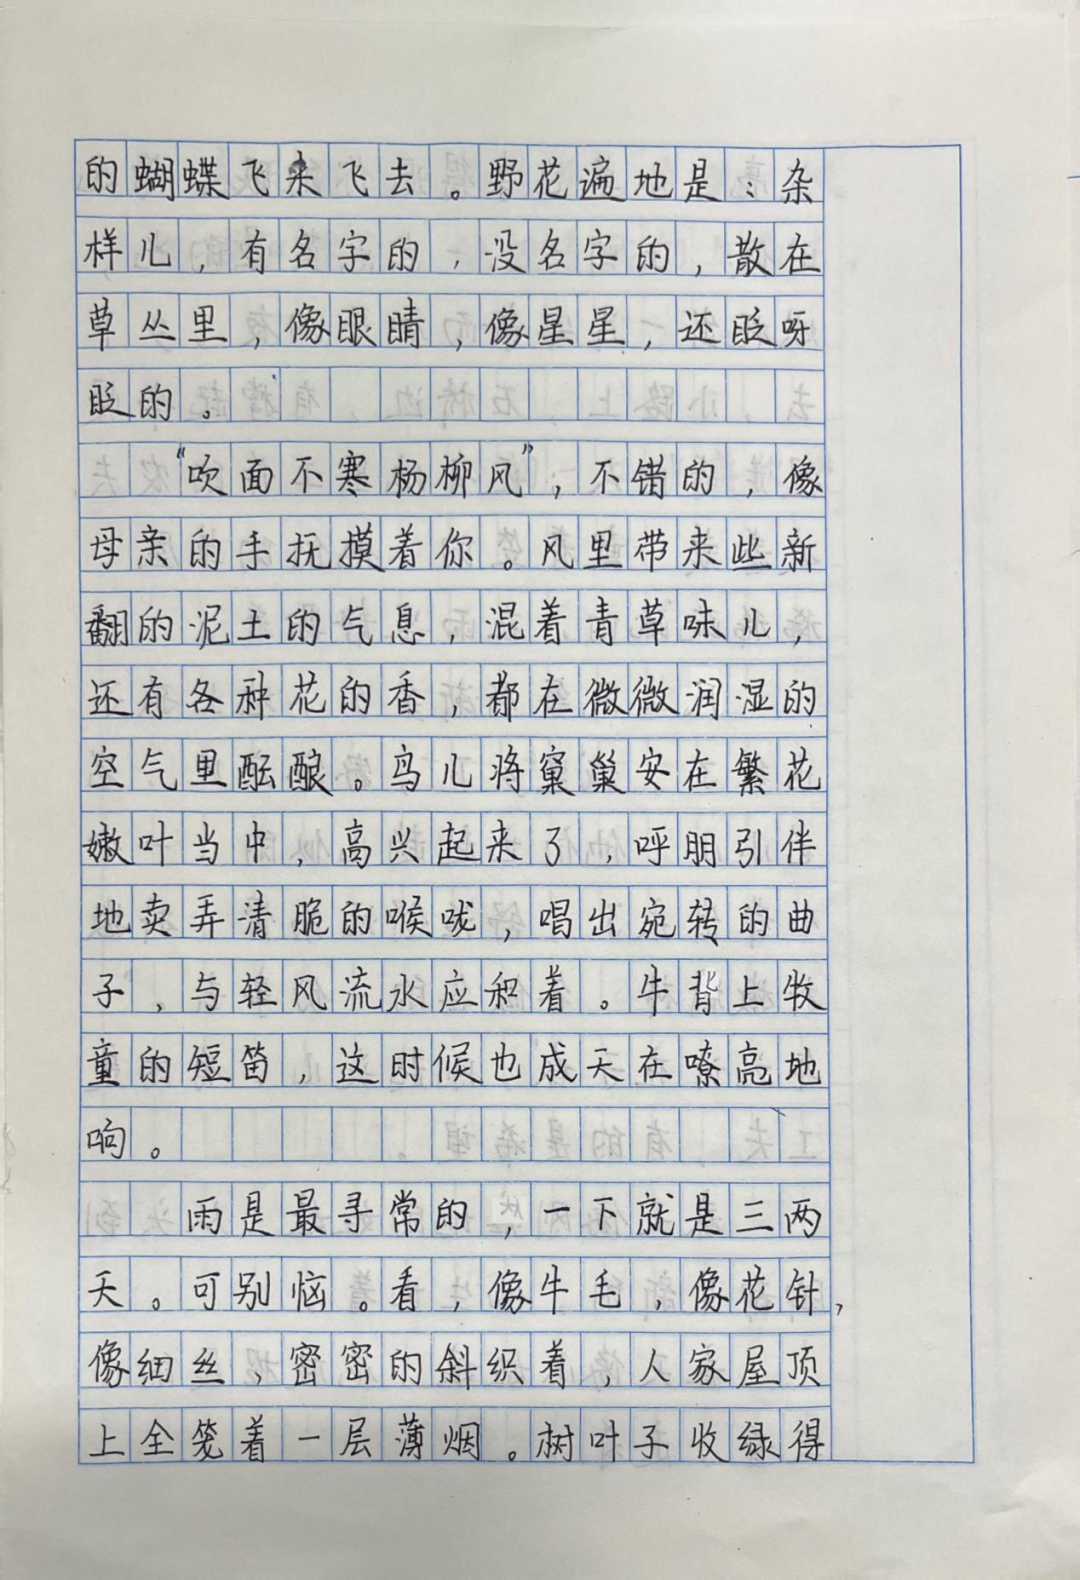 的蝴蝶飞来飞去。野花遍地是：杂
样儿，有名字的，没名字的，散在
草丛里，像眼睛，像星星，还眨呀
眨的。
“吹面不寒杨柳风”，不错的，像
母亲的手抚摸着你。风里带来些新
翻的泥土的气息，混着青草味儿，
还有各种花的香，都在微微润湿的
空气里酝酿。鸟儿将窠巢安在繁花
嫩叶当中，高兴起来了，呼朋引伴
地卖弄清脆的喉咙，唱出宛转的曲
子，与轻风流水应和着。牛背上牧
童的短笛，这时候也成天在嘹亮地
响。
雨是最寻常的，一下就是三两
天。可别恼。看，像牛毛，像花针，
像细丝，密密的斜织着，人家屋顶
上全笼着一层薄烟。树叶子收绿得